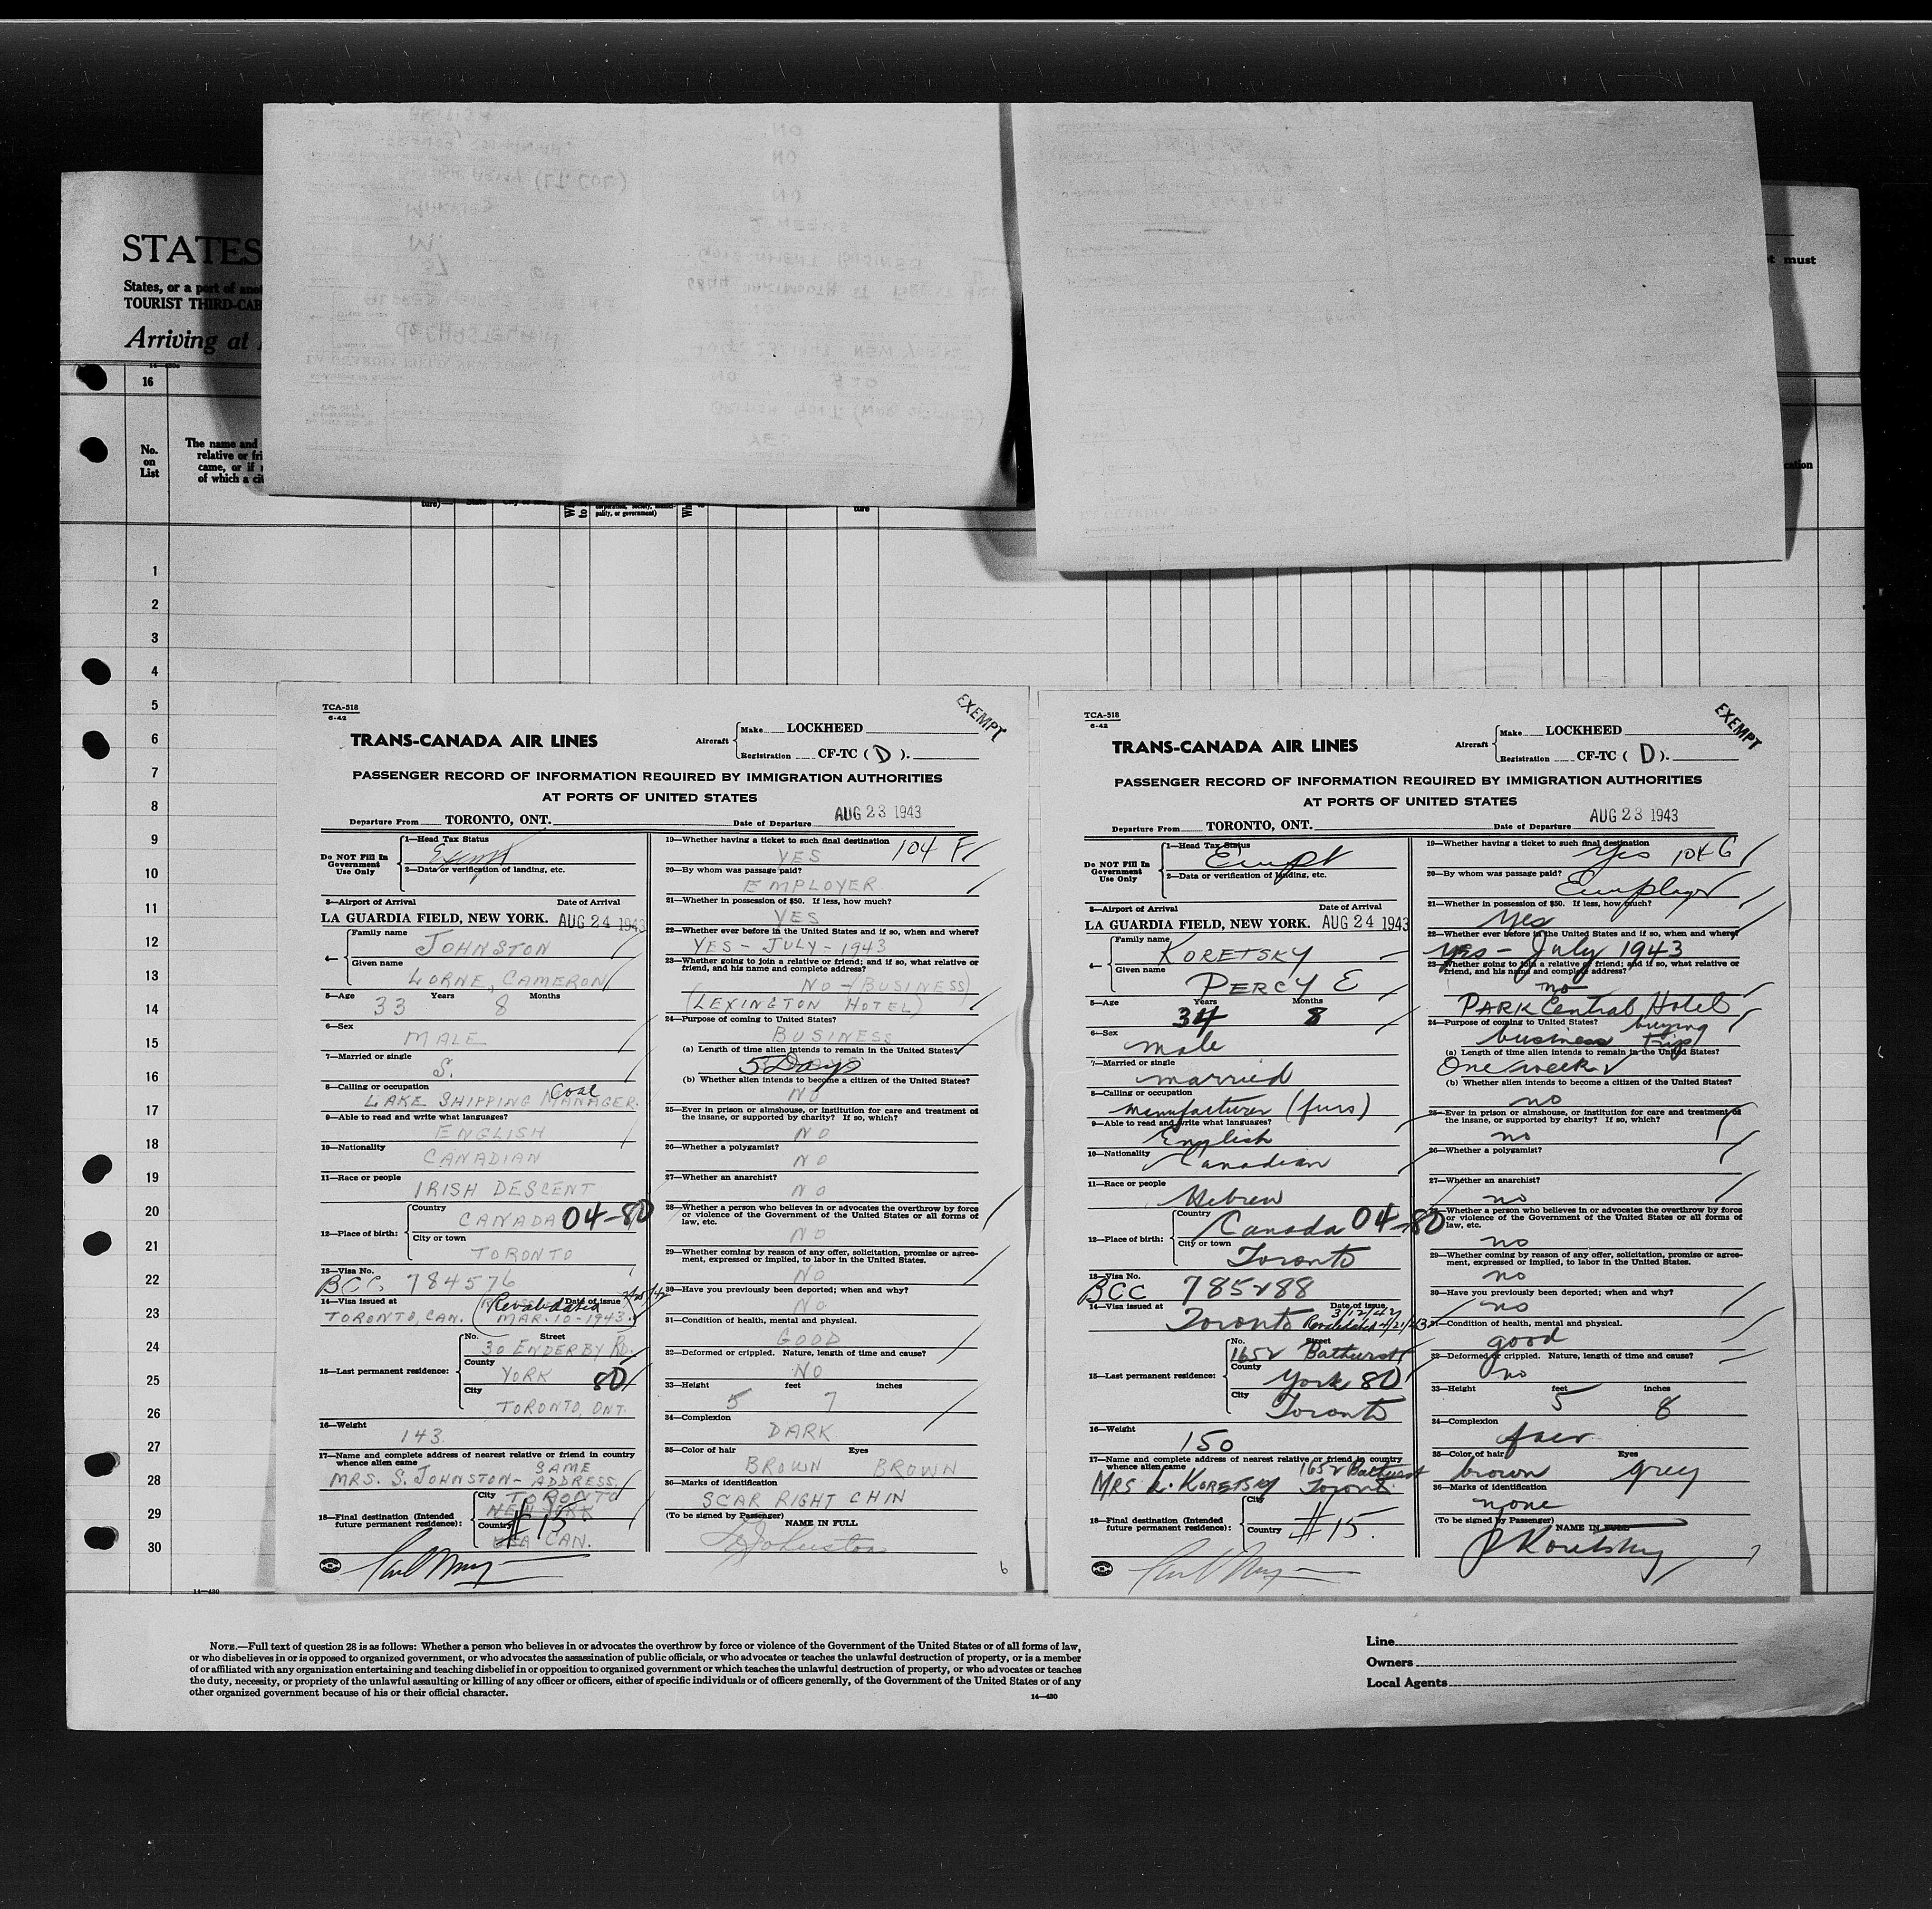 STATES
States, or a port of
TOURIST THIRD-CAB
Arriving at
must
16
No.
on
List
The name and
relative or
came, or if
of which a
ture)—
State
pality, or government)
ture
1
2
3
4
5
6
7
8
9
10
11
12
13
14
15
16
17
18
19
20
21
22
23
24
25
26
27
28
29
30
14—430
TCA-518
6-42
TRANS-CANADA AIR LINES
Aircraft
Make LOCKHEED
Registration CF-TC ( D ).
EXEMPT
PASSENGER RECORD OF INFORMATION REQUIRED BY IMMIGRATION AUTHORITIES
AT PORTS OF UNITED STATES
Departure From TORONTO, ONT. Date of Departure AUG 23 1943
Do NOT Fill In
Government
Use Only
1—Head Tax Status
Exempt
2—Data or verification of landing, etc.
3—Airport of Arrival Date of Arrival
LA GUARDIA FIELD, NEW YORK. AUG 24 1943
4—
Family name
JOHNSTON
Given name
LORNE, CAMERON
5—Age Years Months
33 8
6—Sex
MALE
7—Married or single
S.
8—Calling or occupation
Coal
LAKE SHIPPING MANAGER.
9—Able to read and write what languages?
ENGLISH
10—Nationality
CANADIAN
11—Race or people
IRISH DESCENT
12—Place of birth:
Country
CANADA 04-80
City or town
TORONTO
13—Visa No.
BCC 784576
14—Visa issued at Date of issue
Revalidated
TORONTO, CAN. MAR. 10-1943.
15—Last permanent residence:
No. Street
30 ENDERBY RD.
County
YORK 80
City
TORONTO, ONT.
16—Weight
143.
17—Name and complete address of nearest relative or friend in country
whence alien came
SAME
MRS. S. JOHNSTON- ADDRESS.
18—Final destination (Intended
future permanent residence):
City TORONTO
NEW YORK
Country #15
USA CAN.
19—Whether having a ticket to such final destination 104 F
YES
20—By whom was passage paid?
EMPLOYER
21—Whether in possession of $50. If less, how much?
YES
22—Whether ever before in the United States and if so, when and where?
YES - JULY - 1943
23—Whether going to join a relative or friend; and if so, what relative or
friend, and his name and complete address?
NO - (BUSINESS)
(LEXINGTON HOTEL)
24—Purpose of coming to United States?
BUSINESS
(a) Length of time alien intends to remain in the United States?
5 Days
(b) Whether alien intends to become a citizen of the United States?
NO
25—Ever in prison or almshouse, or institution for care and treatment of
the insane, or supported by charity? If so, which?
NO
26—Whether a polygamist?
NO
27—Whether an anarchist?
NO
28—Whether a person who believes in or advocates the overthrow by force
or violence of the Government of the United States or all forms of
law, etc.
NO
29—Whether coming by reason of any offer, solicitation, promise or agree-
ment, expressed or implied, to labor in the United States.
NO
30—Have you previously been deported; when and why?
NO
31—Condition of health, mental and physical.
GOOD
32—Deformed or crippled. Nature, length of time and cause?
NO
33—Height feet inches
5 7
34—Complexion
DARK
35—Color of hair Eyes
BROWN BROWN
36—Marks of identification
SCAR RIGHT CHIN
(To be signed by Passenger)
NAME IN FULL
L Johnston
6
TCA-518
6-42
TRANS-CANADA AIR LINES
Aircraft
Make LOCKHEED
Registration CF-TC ( D ).
EXEMPT
PASSENGER RECORD OF INFORMATION REQUIRED BY IMMIGRATION AUTHORITIES
AT PORTS OF UNITED STATES
Departure From TORONTO, ONT. Date of Departure AUG 23 1943
Do NOT Fill In
Government
Use Only
1—Head Tax Status
Exmpt
2—Data or verification of landing, etc.
3—Airport of Arrival Date of Arrival
LA GUARDIA FIELD, NEW YORK. AUG 24 1943
4—
Family name
KORETSKY
Given name
PERCY E
5—Age Years Months
34 8
6—Sex
male
7—Married or single
married
8—Calling or occupation
manufacturer (furs)
9—Able to read and write what languages?
English
10—Nationality
Canadian
11—Race or people
Hebrew
12—Place of birth:
Country
Canada 04-80
City or town
Toronto
13—Visa No.
BCC 785288
14—Visa issued at Date of issue
3/12/42
Toronto Revalidated 4/21/43
15—Last permanent residence:
No. Street
1652 Bathurst
County
York 80
City
Toronto
16—Weight
150
17—Name and complete address of nearest relative or friend in country
whence alien came 1652 Bathurst
MRS L. KORETSKY Toronto
18—Final destination (Intended
future permanent residence):
City
Country #15.
19—Whether having a ticket to such final destination
Yes 104 G
20—By whom was passage paid?
Employer
21—Whether in possession of $50. If less, how much?
Yes
22—Whether ever before in the United States and if so, when and where?
yes - July 1943
23—Whether going to join a relative or friend; and if so, what relative or
friend, and his name and complete address?
no
PARK Central Hotel
24—Purpose of coming to United States? buying
business trip
(a) Length of time alien intends to remain in the United States?
One week
(b) Whether alien intends to become a citizen of the United States?
no
25—Ever in prison or almshouse, or institution for care and treatment of
the insane, or supported by charity? If so, which?
no
26—Whether a polygamist?
27—Whether an anarchist?
no
28—Whether a person who believes in or advocates the overthrow by force
or violence of the Government of the United States or all forms of
law, etc.
no
29—Whether coming by reason of any offer, solicitation, promise or agree-
ment, expressed or implied, to labor in the United States.
no
30—Have you previously been deported; when and why?
no
31—Condition of health, mental and physical.
good
32—Deformed or crippled. Nature, length of time and cause?
no
33—Height feet inches
5 8
34—Complexion
fair
35—Color of hair Eyes
brown grey
36—Marks of identification
none
(To be signed by Passenger)
NAME IN FULL
P Koretsky
7
NOTE.—Full text of question 28 is as follows: Whether a person who believes in or advocates the overthrow by force or violence of the Government of the United States or of all forms of law,
or who disbelieves in or is opposed to organized government, or who advocates the assassination of public officials, or who advocates or teaches the unlawful destruction of property, or is a member
of or affiliated with any organization entertaining and teaching disbelief in or opposition to organized government or which teaches the unlawful destruction of property, or who advocates or teaches
the duty, necessity, or propriety of the unlawful assaulting or killing of any officer or officers, either of specific individuals or of officers generally, of the Government of the United States or of any
other organized government because of his or their official character.
14—430
Line
Owners
Local Agents